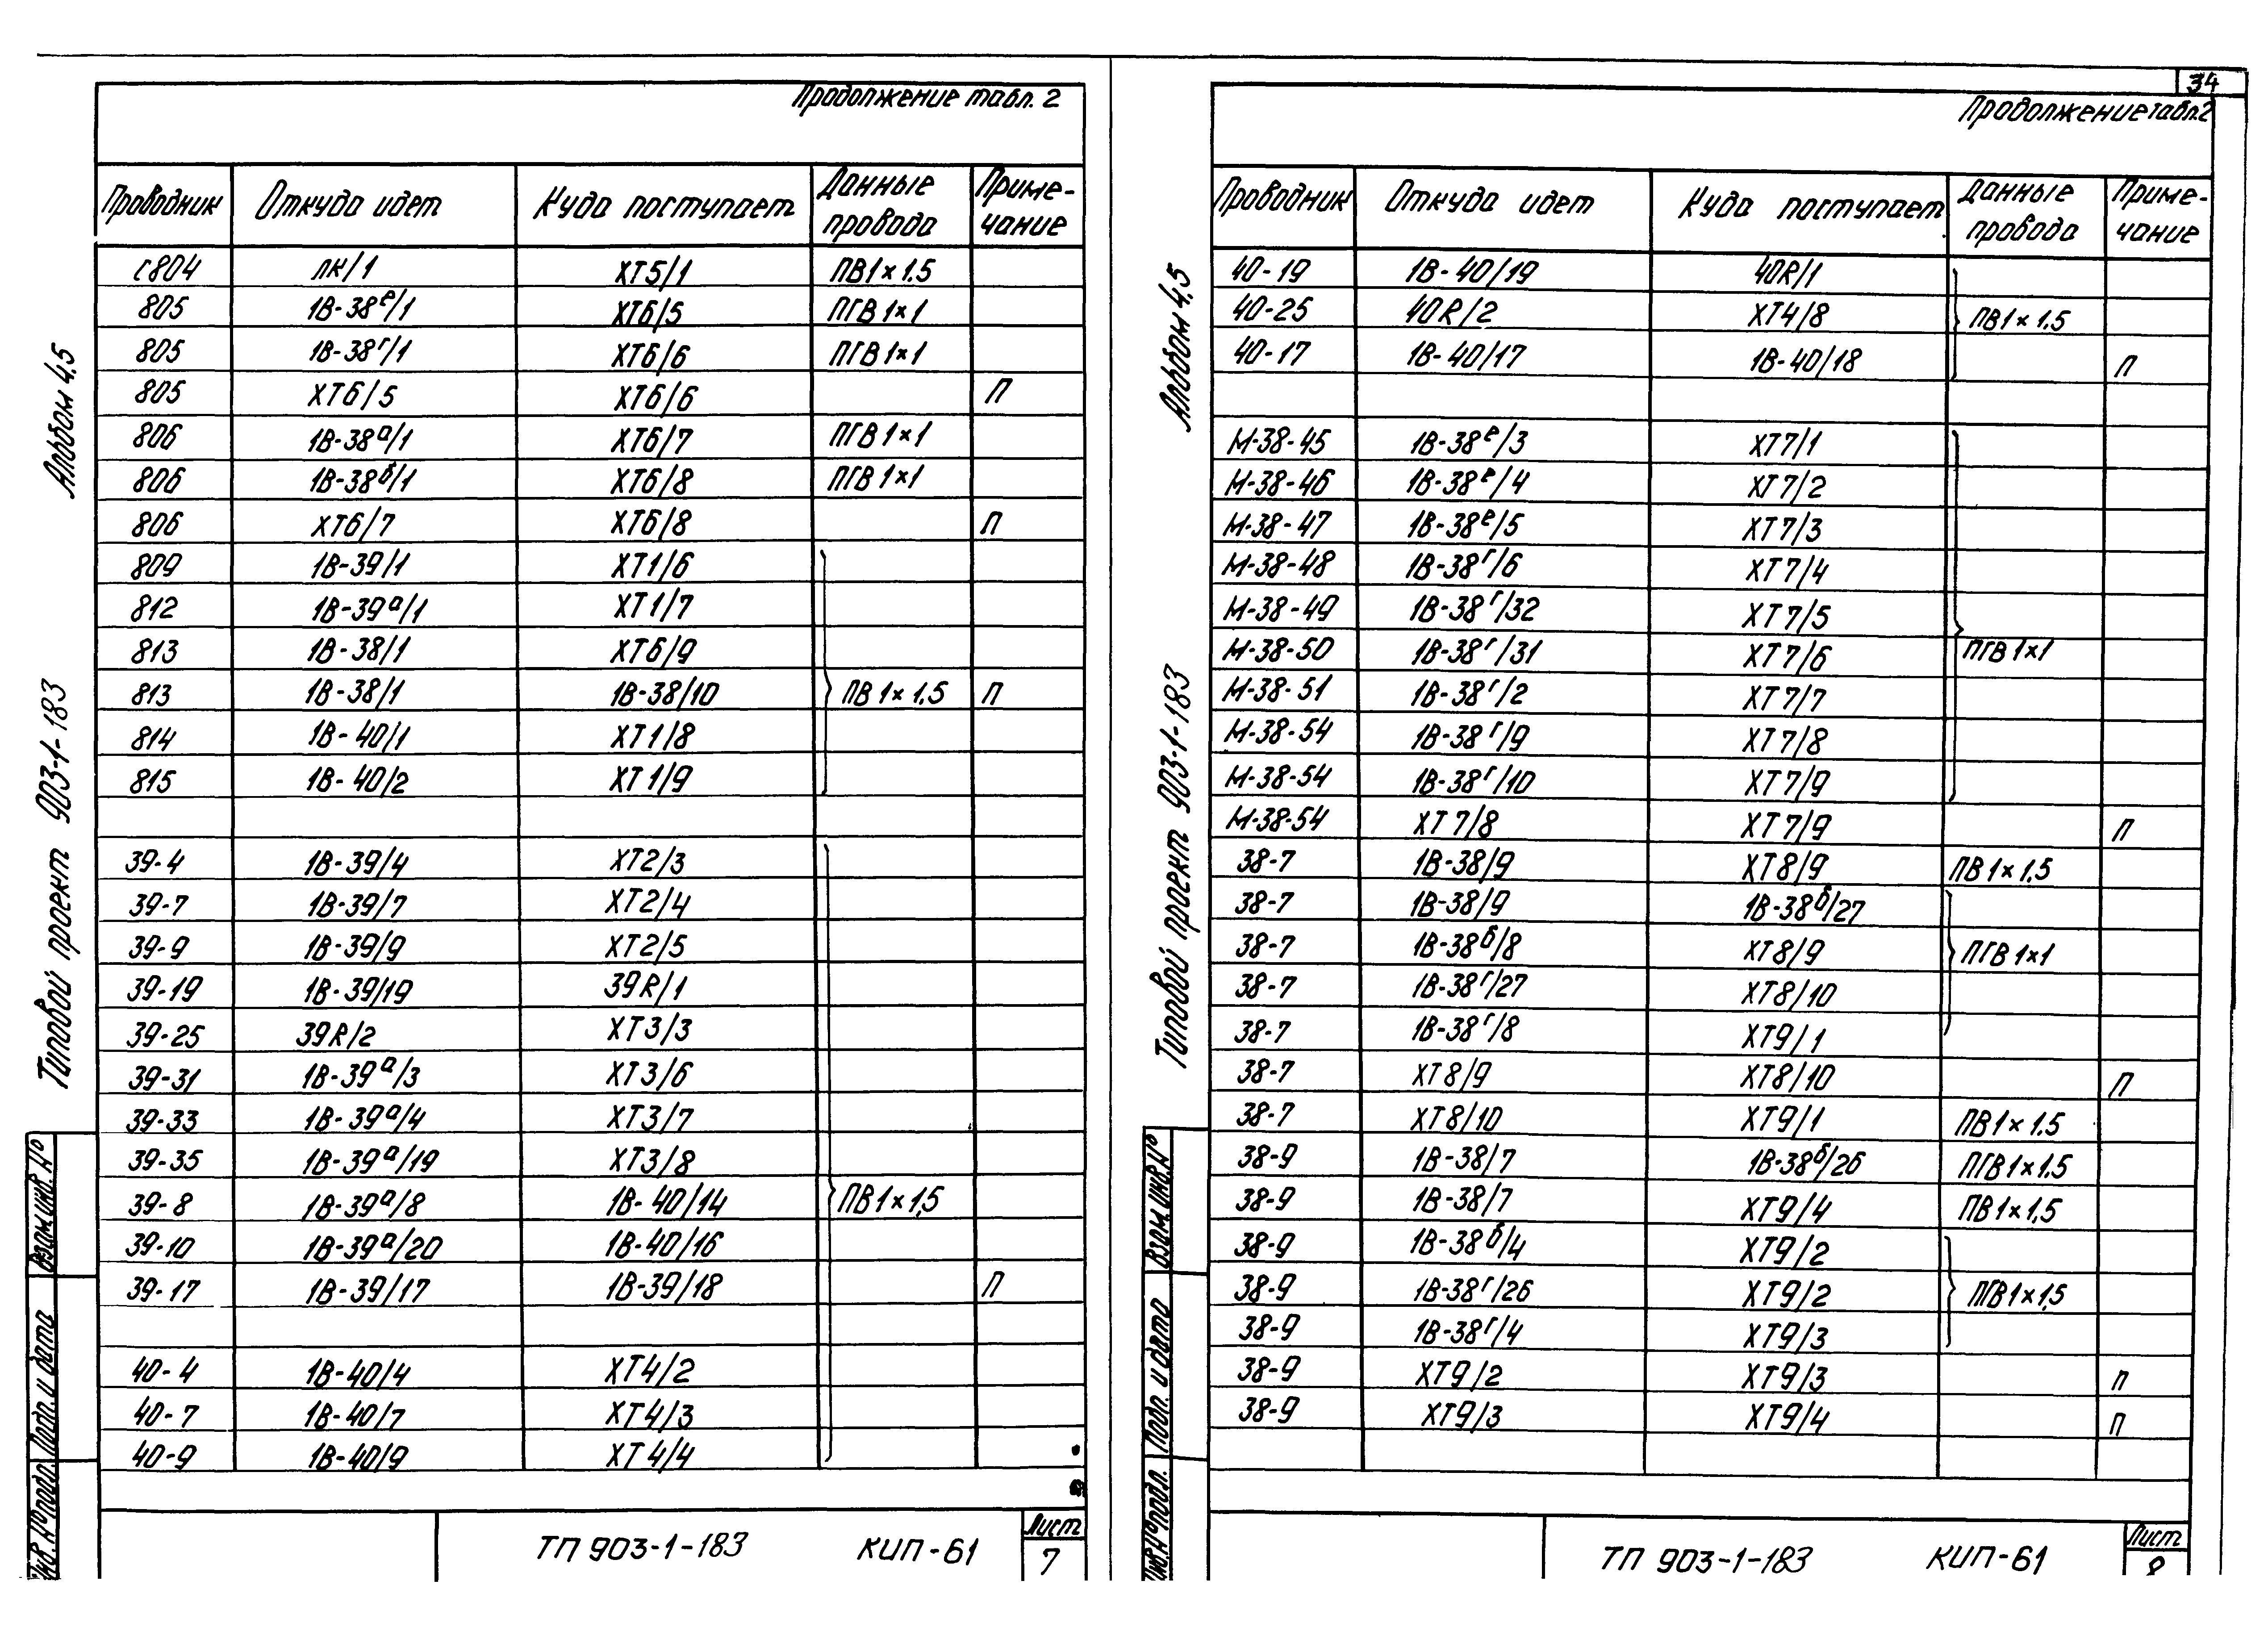 34
Продолжение табл. 2
Проводник | Откуда идет | Куда поступает | Данные провода | Приме-чание
С804 | ЛК/1 | ХТ5/1 | ПВ1×1.5
805 | 1В-38е/1 | ХТ6/5 | ПГВ1×1
805 | 1В-38г/1 | ХТ6/6 | ПГВ1×1
805 | ХТ6/5 | ХТ6/6 | П
806 | 1В-38а/1 | ХТ6/7 | ПГВ1×1
806 | 1В-38б/1 | ХТ6/8 | ПГВ1×1
806 | ХТ6/7 | ХТ6/8 | П
809 | 1В-39/1 | ХТ1/6
812 | 1В-39а/1 | ХТ1/7
813 | 1В-38/1 | ХТ6/9
813 | 1В-38/1 | 1В-38/10 | ПВ1×1,5 | П
814 | 1В-40/1 | ХТ1/8
815 | 1В-40/2 | ХТ1/9
39-4 | 1В-39/4 | ХТ2/3
39-7 | 1В-39/7 | ХТ2/4
39-9 | 1В-39/9 | ХТ2/5
39-19 | 1В-39/19 | 39R/1
39-25 | 39R/2 | ХТ3/3
39-31 | 1В-39а/3 | ХТ3/6
39-33 | 1В-39а/4 | ХТ3/7
39-35 | 1В-39а/19 | ХТ3/8
39-8 | 1В-39а/8 | 1В-40/14 | ПВ1×1,5
39-10 | 1В-39а/20 | 1В-40/16
39-17 | 1В-39/17 | 1В-39/18 | П
40-4 | 1В-40/4 | ХТ4/2
40-7 | 1В-40/7 | ХТ4/3
40-9 | 1В-40/9 | ХТ4/4
ТП 903-1-183 КИП-61
Лист
7
Альбом 4.5
Типовой проект 903-1-183
Взам.инв.№
Подп. и дата
Инв.№подл.
Продолжение табл. 2
Проводник | Откуда идет | Куда поступает | Данные провода | Приме-чание
40-19 | 1В-40/19 | 40R/1
40-25 | 40R/2 | ХТ4/8 | ПВ1×1.5
40-17 | 1В-40/17 | 1В-40/18 | П
М-38-45 | 1В-38е/3 | ХТ7/1
М-38-46 | 1В-38е/4 | ХТ7/2
М-38-47 | 1В-38е/5 | ХТ7/3
М-38-48 | 1В-38г/6 | ХТ7/4
М-38-49 | 1В-38г/32 | ХТ7/5
М-38-50 | 1В-38г/31 | ХТ7/6 | ПГВ1×1
М-38-51 | 1В-38г/2 | ХТ7/7
М-38-54 | 1В-38г/9 | ХТ7/8
М-38-54 | 1В-38г/10 | ХТ7/9
М-38-54 | ХТ7/8 | ХТ7/9 | П
38-7 | 1В-38/9 | ХТ8/9 | ПВ1×1,5
38-7 | 1В-38/9 | 1В-38б/27
38-7 | 1В-38б/8 | ХТ8/9 | ПГВ1×1
38-7 | 1В-38г/27 | ХТ8/10
38-7 | 1В-38г/8 | ХТ9/1
38-7 | ХТ8/9 | ХТ8/10 | П
38-7 | ХТ8/10 | ХТ9/1 | ПВ1×1.5
38-9 | 1В-38/7 | 1В-38б/26 | ПГВ1×1.5
38-9 | 1В-38/7 | ХТ9/4 | ПВ1×1,5
38-9 | 1В-38б/4 | ХТ9/2
38-9 | 1В-38г/26 | ХТ9/2 | ПГВ1×1,5
38-9 | 1В-38г/4 | ХТ9/3
38-9 | ХТ9/2 | ХТ9/3 | П
38-9 | ХТ9/3 | ХТ9/4 | П
ТП 903-1-183 КИП-61
Лист
8
Альбом 4.5
Типовой проект 903-1-183
Взам.инв.№
Подп. и дата
Инв.№подл.